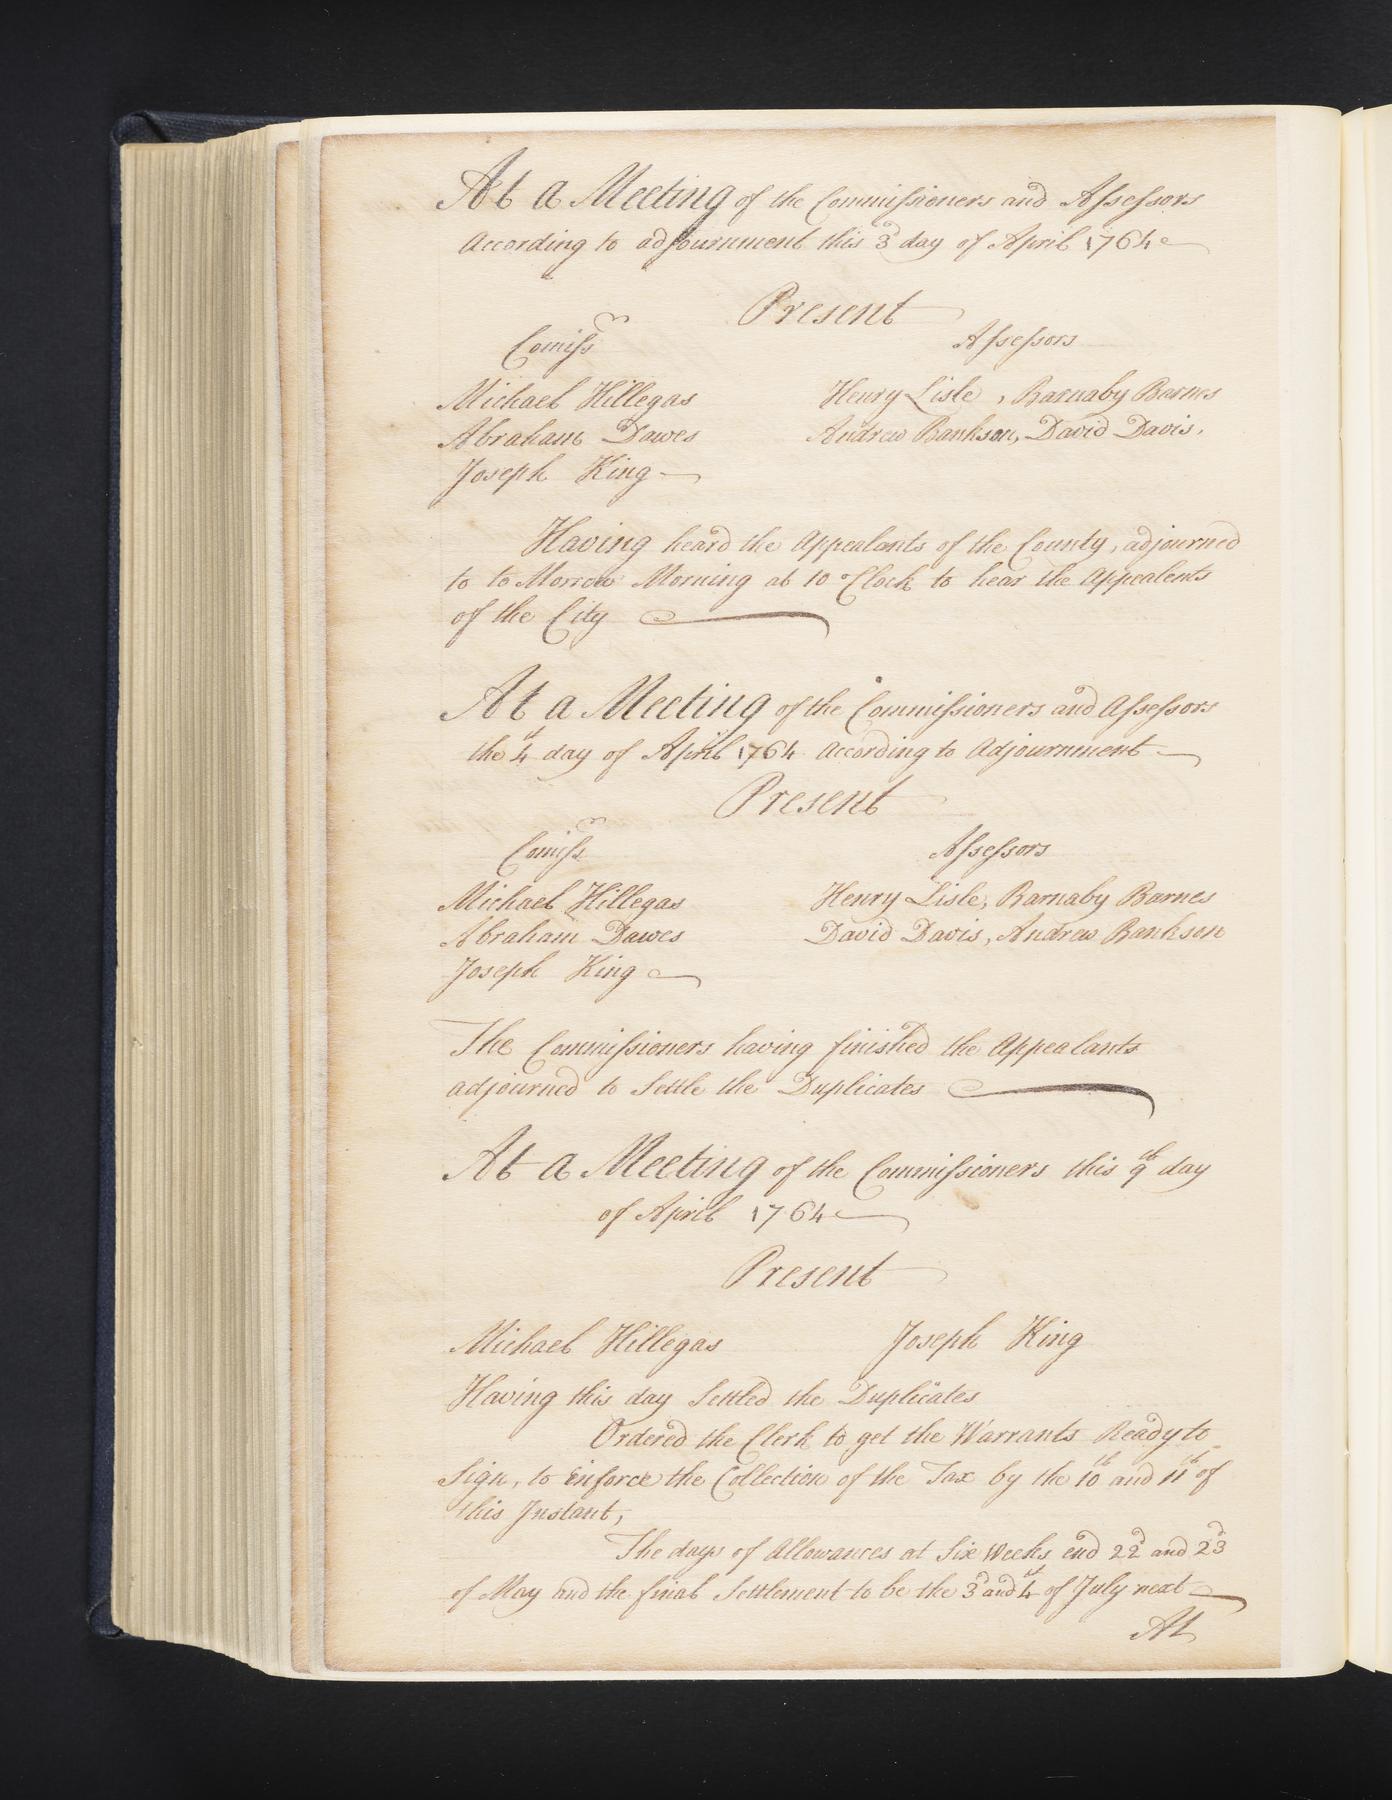 At a Meeting of the Commissioners and Assessors
According to adjournment this 3d day of April 1764
Present
Comiss
Assessors
Michael Hillegas
Henry Lisle, Barnaby Barnes
Abraham Dawes
Andrew Bankson, David Davis.
Joseph King
Having heard the Appealants of the County, adjourned
to to Morrow Morning at 10 oClock to hear the Appealents
of the City
At a Meeting of the Commissioners and Assessors
the 4th day of April 1764 According to Adjournment
Present
Comiss
Assessors
Michael Hillegas
Henry Lisle, Barnaby Barnes
Abraham Dawes
David Davis, Andrew Bankson
Joseph King
The Commissioners having finished the Appealants
adjourned to Settle the Duplicates
At a Meeting of the Commissioners this 9th day
of April 1764
Present
Michael Hillegas
Joseph King
Having this day Settled the Duplicates
Ordered the Clerk to get the Warrants Ready to
Sign, to Enforce the Collection of the Tax by the 10th and 11th of
this Instant,
The days of Allowances at Six Weeks end 22d and 23d
of May and the final Settlement to be the 3d and 4th of July next
At